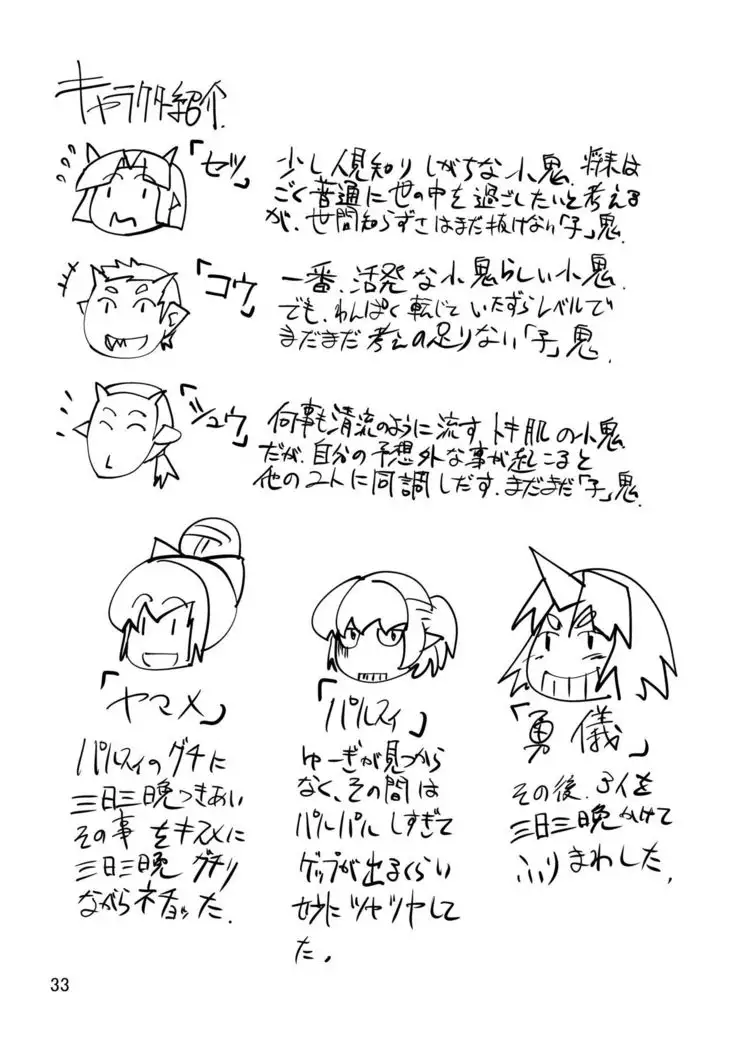 キャラクター紹介
「セツ」
少し人見知りしがちな小鬼。将来は
ごく普通に世の中を過ごしたいと考える
が、世間知らずさはまだ抜けない「子」鬼。
「コウ」
一番、活発な小鬼らしい小鬼。
でも、わんぱく転じていたずらレベルで
まだまだ考えの足りない「子」鬼。
「シュウ」
何事も清流のように流すトキ肌の小鬼
だが、自分の予想外な事が起こると
他の2人に同調しだす。まだまだ「子」鬼。
「ヤマメ」
パルスィのグチに
三日三晩つきあい
その事をキスメに
三日三晩グチり
ながらネチョッた。
「パルスィ」
ゆーぎが見つから
なく、その間は
パルパルしすぎて
ゲップが出るくらい
妙にツヤツヤして
た。
「勇儀」
その後、3人を
三日三晩かけて
ふりまわした。
33